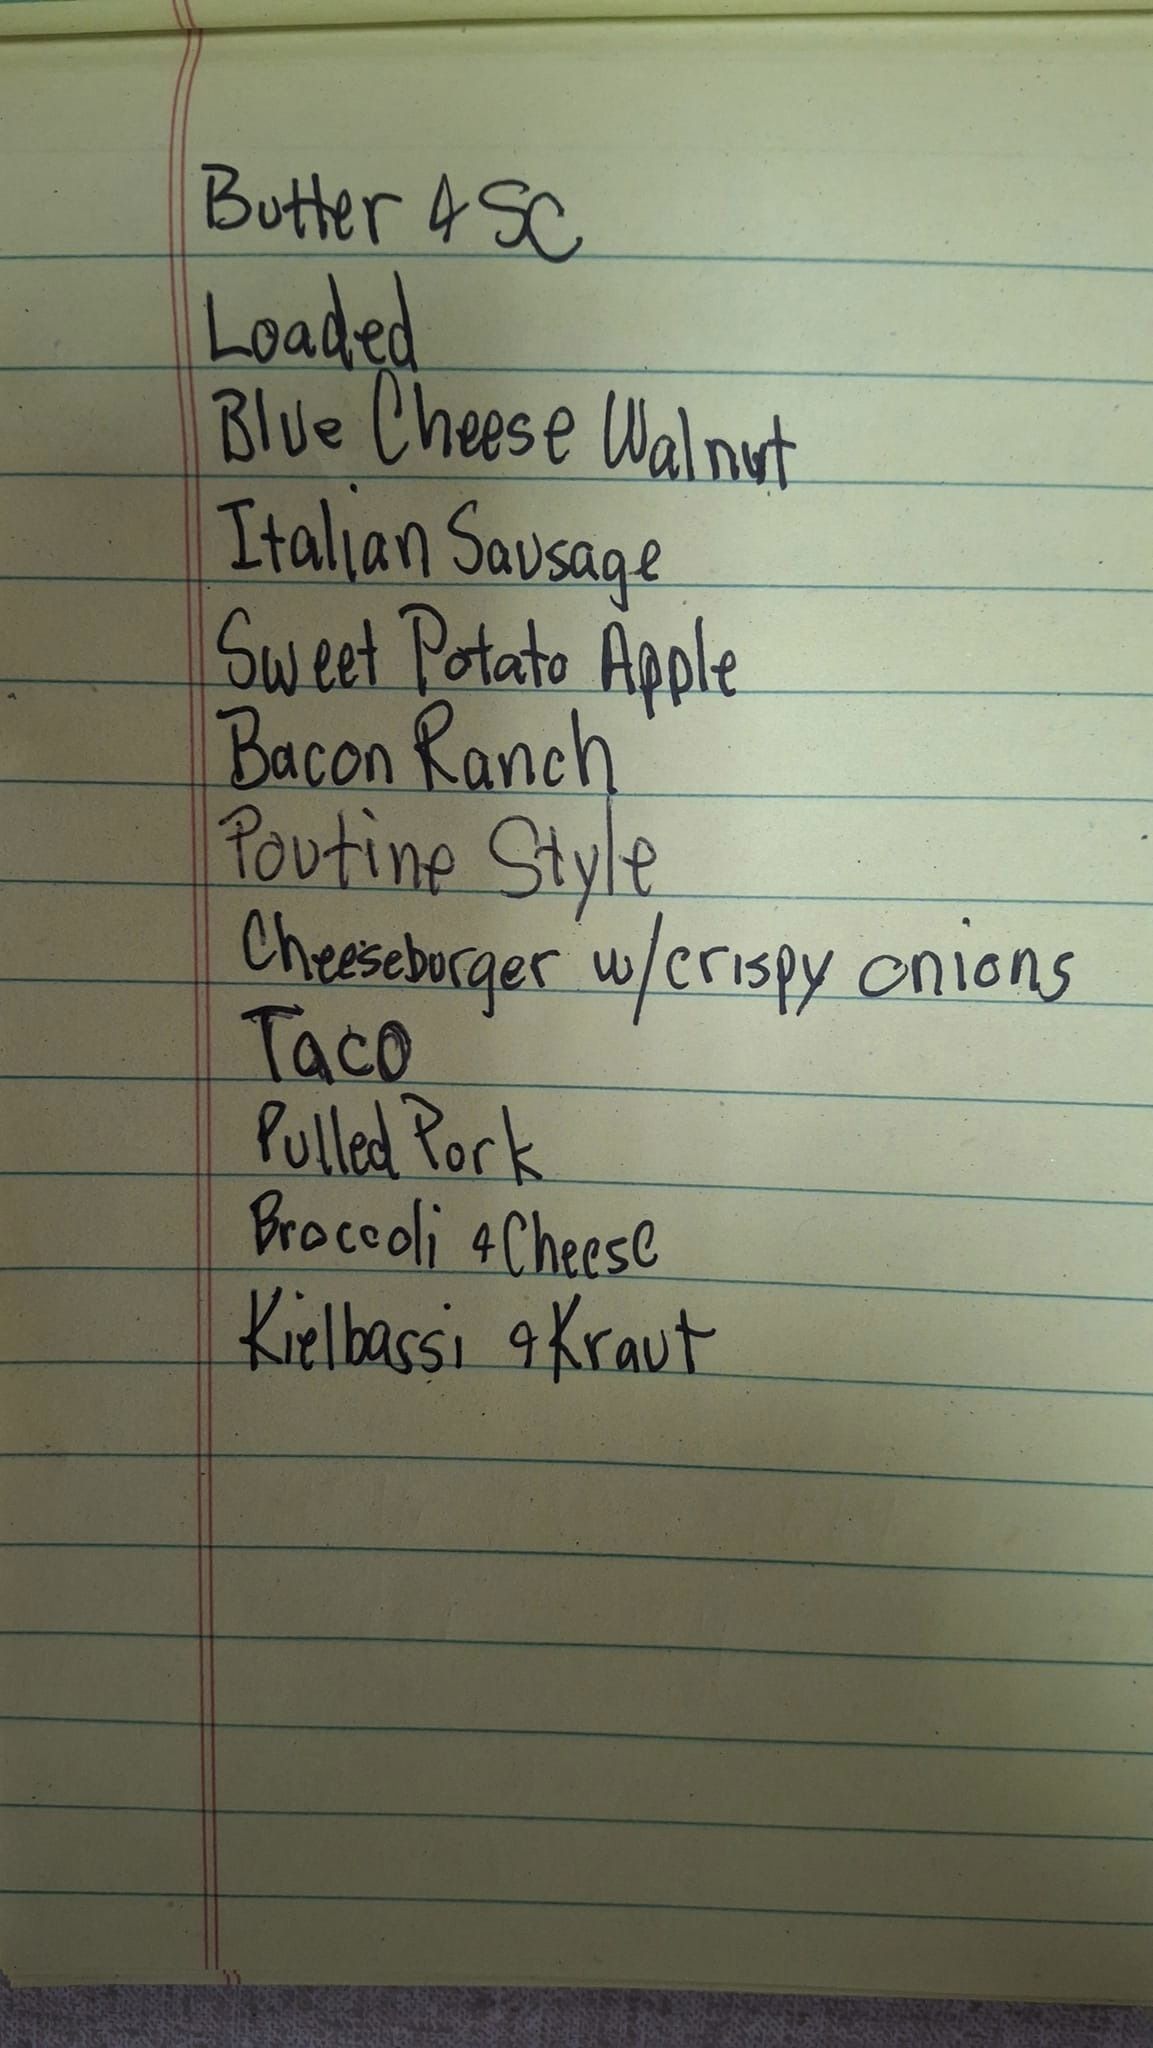 Butter & SC
Loaded
Blue Cheese Walnut
Italian Sausage
Sweet Potato Apple
Bacon Ranch
Poutine Style
Cheeseburger w/crispy onions
Taco
Pulled Pork
Broccoli & Cheese
Kielbassi & Kraut